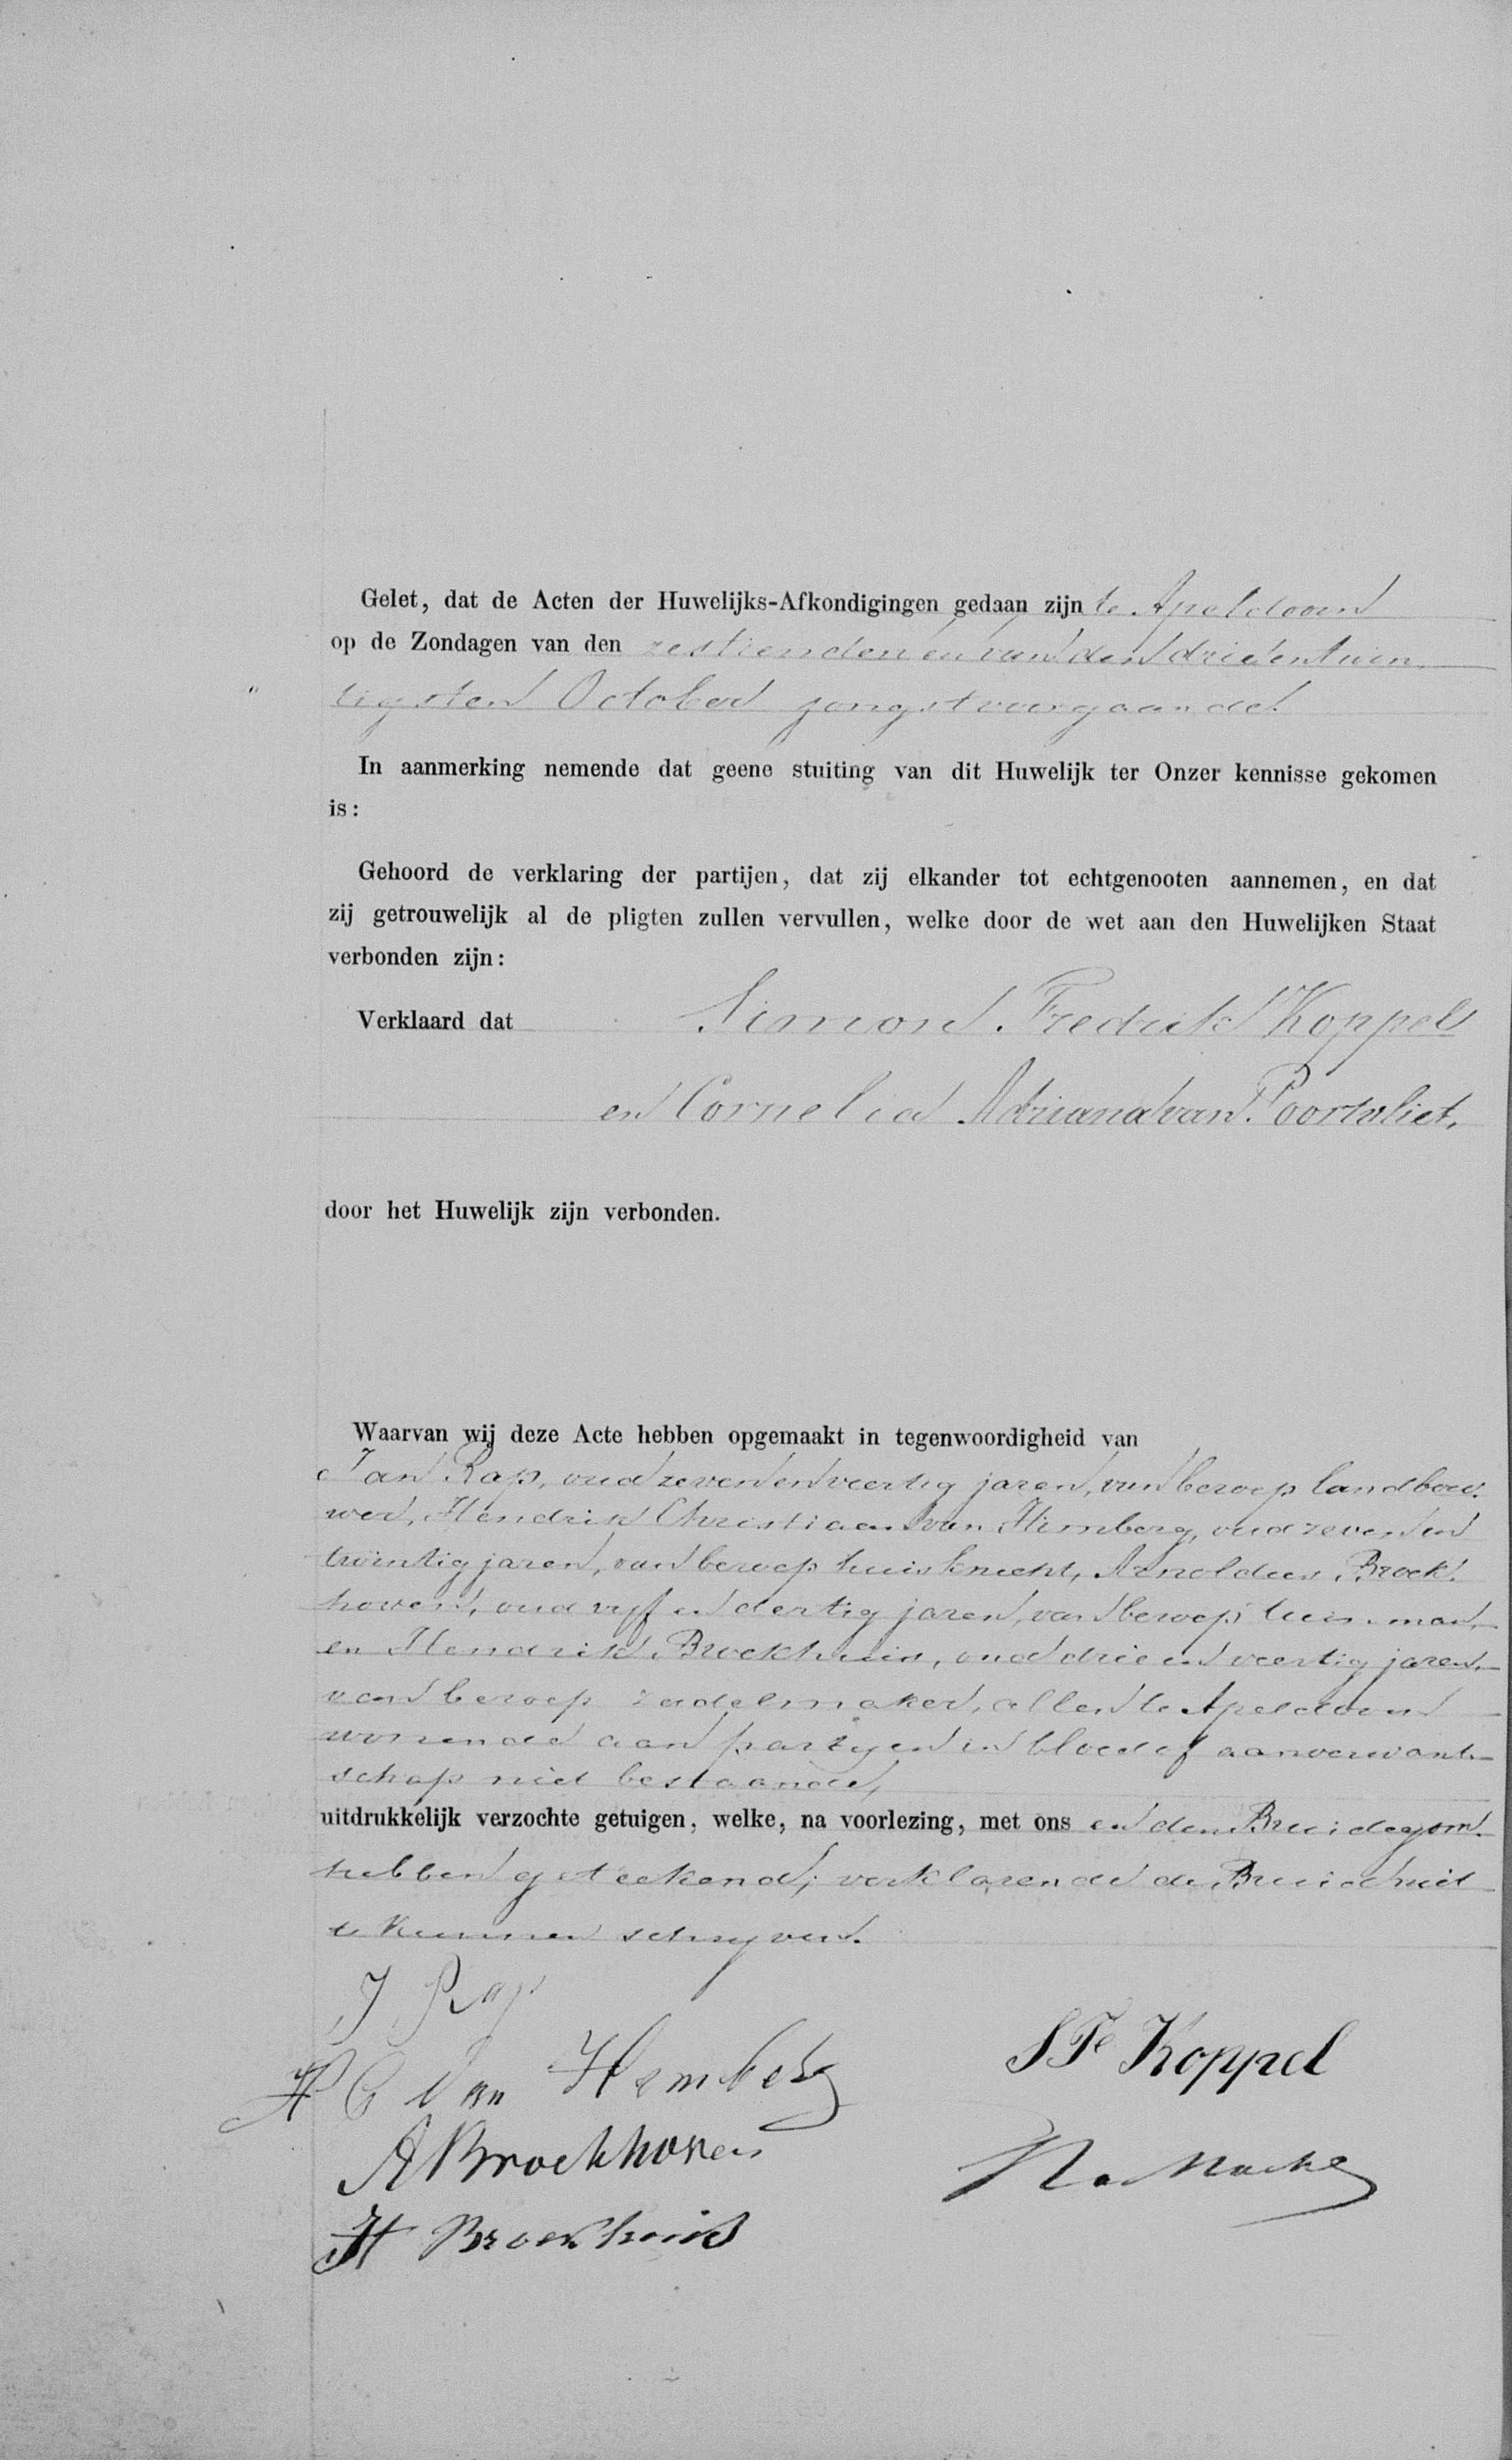 Gelet, dat de Acten der Huwelijks-Afkondigingen gedaan zijn te Apeldoorn
op de Zondagen van den zestienden en van den drieentwin
tigsten October jongstvoorgaande.
In aanmerking nemende dat geene stuiting van dit Huwelijk ter Onzer kennisse gekomen
is:
Gehoord de verklaring der partijen, dat zij elkander tot echtgenooten aannemen, en dat
zij getrouwelijk al de pligten zullen vervullen, welke door de wet aan den Huwelijken Staat
verbonden zijn:
Verklaard dat Simon Fredrik Koppel
en Cornelia Adriana van Poortvliet,
door het Huwelijk zijn verbonden.
Waarvan wij deze Acte hebben opgemaakt in tegenwoordigheid van
Jan Rap, oud zeven en veertig jaren, van beroep landbou-
wer, Hendrik Christiaan van Himberg, oud zeven en
twintig jaren, van beroep huisknecht, Arnoldus Broek-
hoven, oud vijf en dertig jaren, van beroep tuinman,
en Hendrik Broekhuis, oud drie en veertig jaren,
van beroep zadelmaker, allen te Apeldoorn
wonende aan partyen in bloed of aanverwant-
schap niet bestaande,
uitdrukkelijk verzochte getuigen, welke, na voorlezing, met ons en den Bruidegom
hebben geteekend; verklarende de Bruid niet
te kunnen schryven.
J Rap
H C van Hemberg
S Fe Koppel
A Broekhoven
H Broekhuis